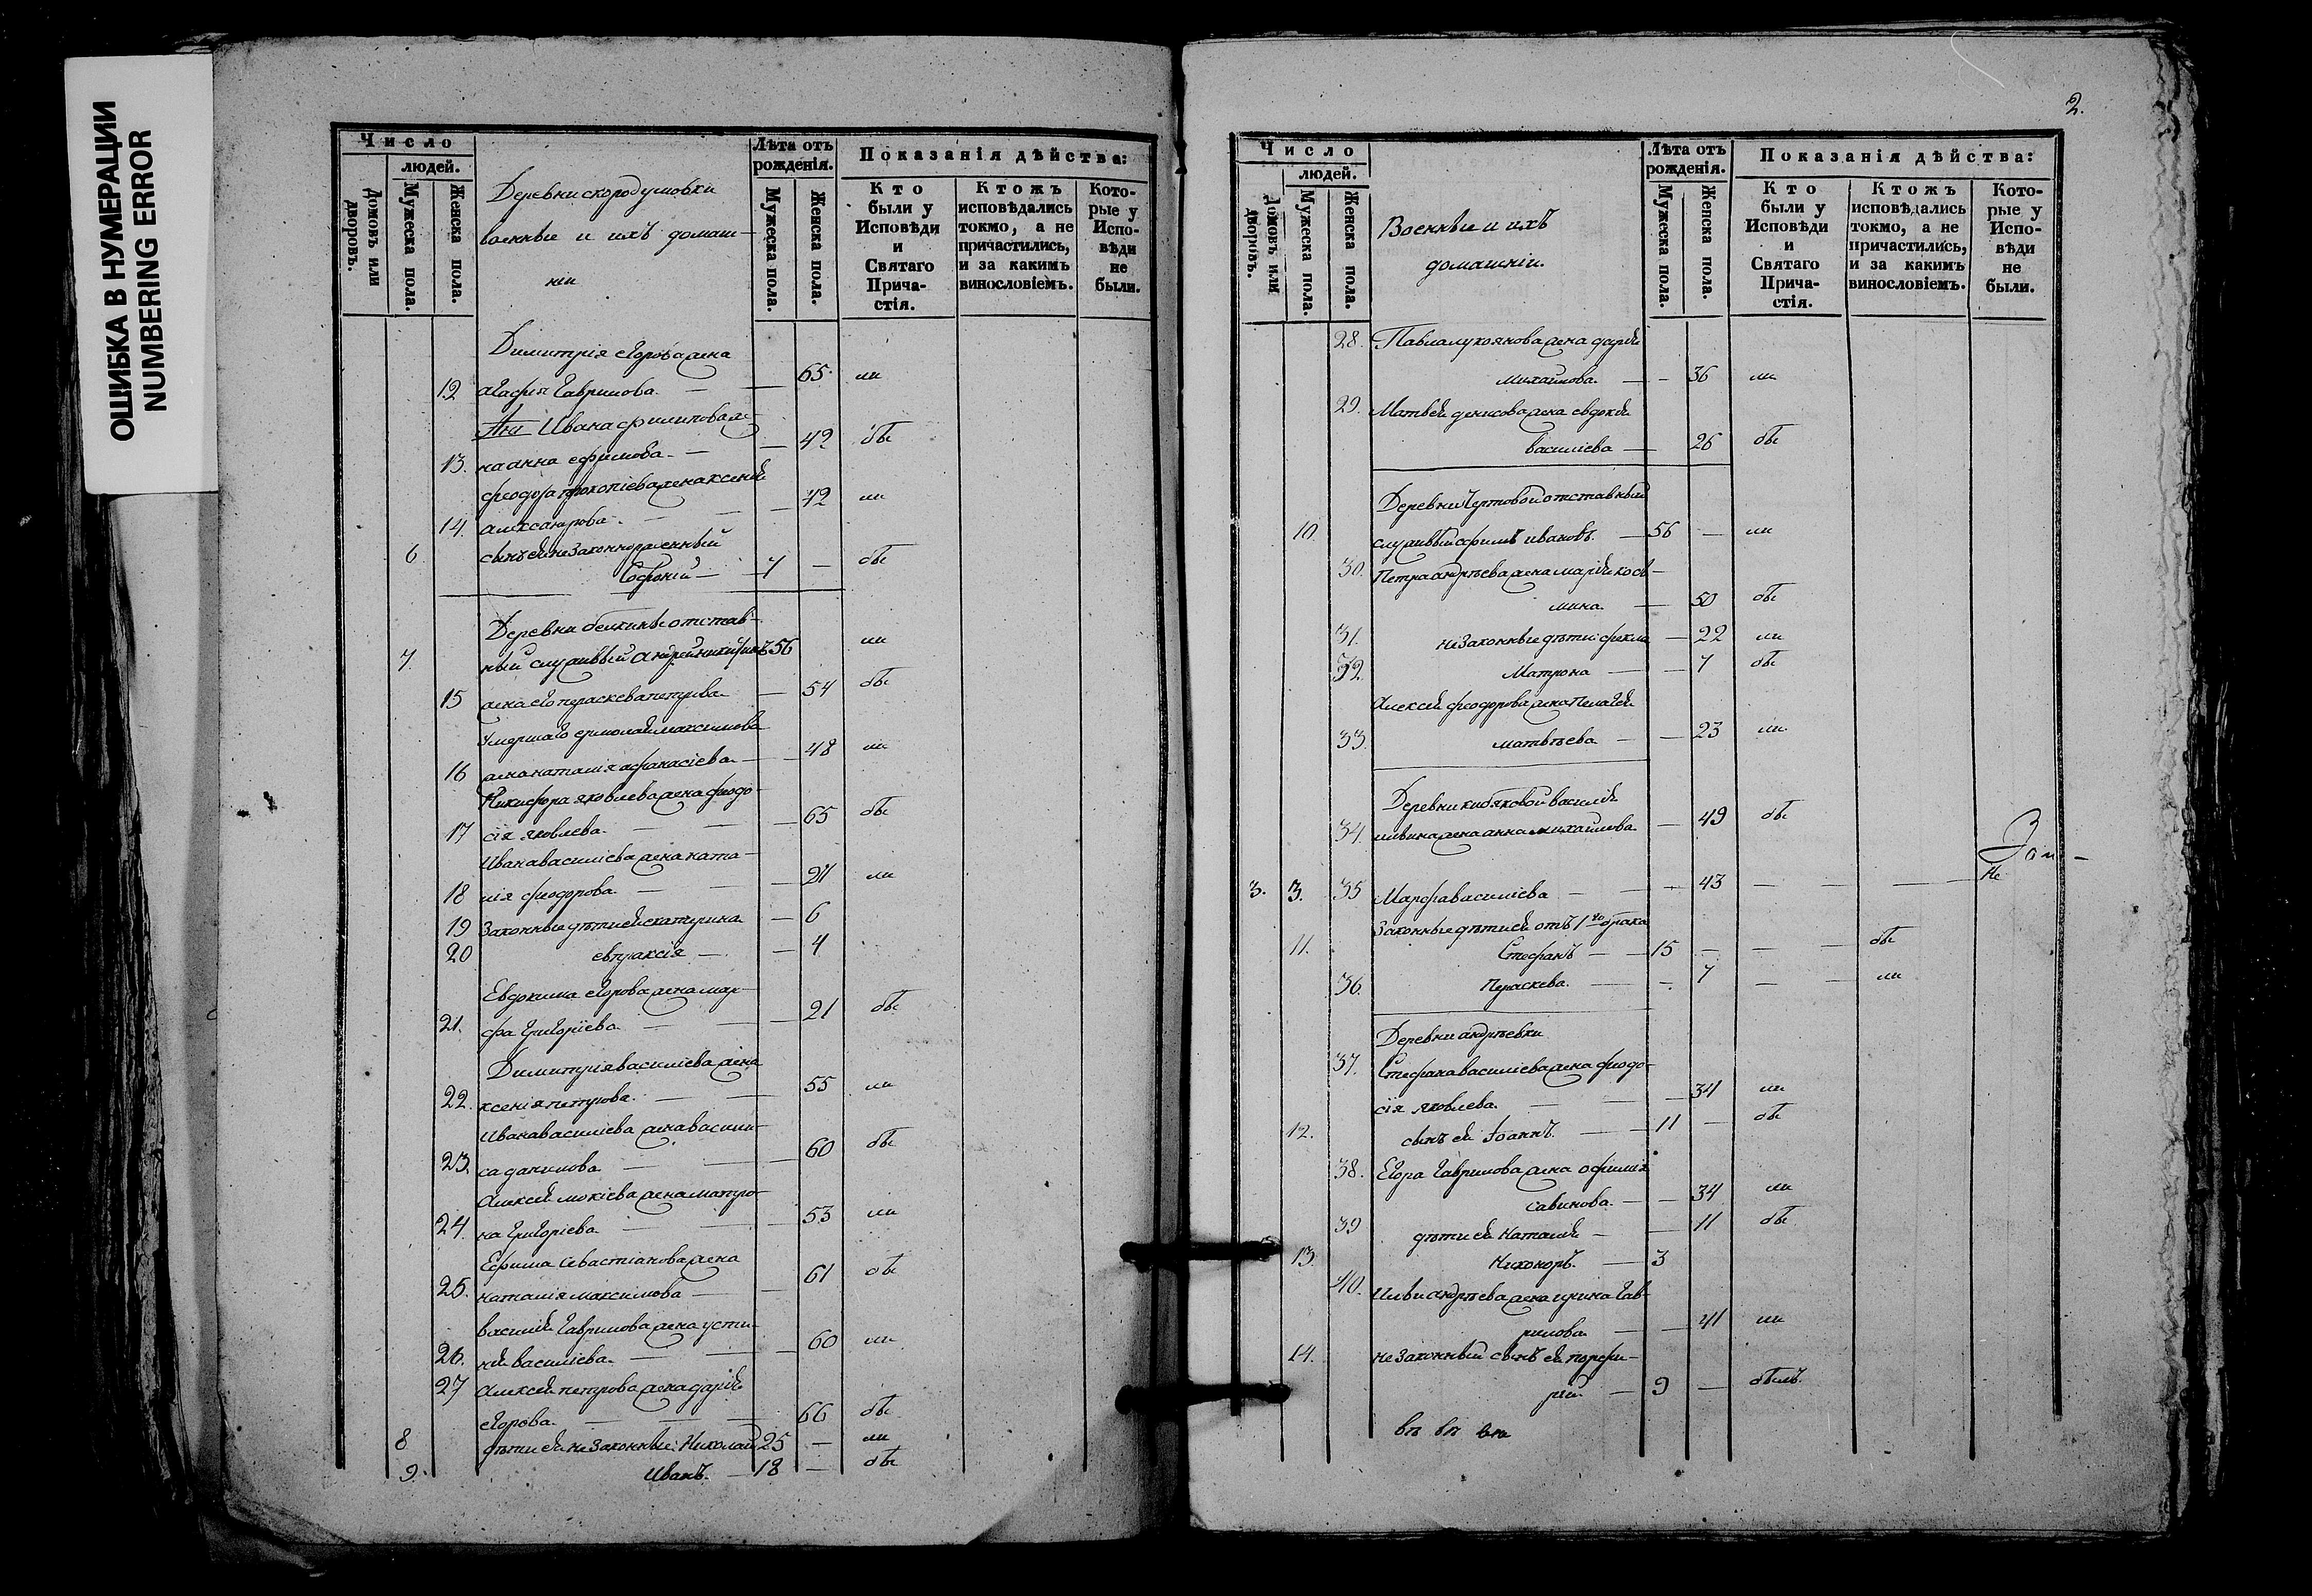 ОШИБКА В НУМЕРАЦИИ
NUMBERING ERROR
Число
людей.
Домовъ или дворовъ.
Мужеска пола.
Женска пола.
Деревни скородумовки
военные и ихъ домаш-
нїи
Лѣта отъ рожденія.
Мужеска пола.
Женска пола.
Показанія дѣйства:
Кто были у Исповѣди и Святаго Прича-стія.
Ктожъ исповѣдались токмо, а не причастились, и за какимъ винословіемъ.
Кото-рые у Испо-вѣди не были.
Димитрія егорова жена
12 агафія гаврилова. — — 65 ли
Ивана филипова же-
13. на анна ефимова. — — 42 бы
феодора прокопіева жена ксенія
14. александрова. — — 72 ли
6 сынъ ей незаконнорожденный
Софроній — 7 — бы
Деревни белкины отстав-
7 ный служивый андрей никифоровъ 56 ли
15 жена его пераскева петрова — 54 бы
Умершаго ермолая максимова
16 жена наталія афанасіева — 48 ли
Никифора яковлева жена феодо-
17 сія яковлева. — — 65 бы
Ивана василіева жена ната-
18 лія феодорова. — — 27 ли
19 Законные дѣти ей екатерина — 6
20 евпраксія — — 4
Евдокима егорова жена мар-
21. фа григоріева. — — 21 бы
Димитрія василіева жена
22. ксенія петрова. — — 55 ли
Ивана василіева жена васили-
23. са данилова — — 60 бы
Алексея мокіева жена матро-
24. на григоріева — — 53 ли
Ефима севастіанова жена
25. наталія максимова — — 61 бы
василія гаврилова жена усти-
26. нія василіева. — — 60 ли
27 Алексея петрова жена дарія
егорова. — — 66 бы
8 дѣти ей незаконные: Николай 25 — ли
9. Иванъ. — 18 — бы
2.
Число
людей.
Домовъ или дворовъ.
Мужеска пола.
Женска пола.
Военные и ихъ
домашніи.
Лѣта отъ рожденія.
Мужеска пола.
Женска пола.
Показанія дѣйства:
Кто были у Исповѣди и Святаго Прича-стія.
Ктожъ исповѣдались токмо, а не причастились, и за какимъ винословіемъ.
Кото-рые у Испо-вѣди не были.
28. Павла лукоянова жена дарія
михаилова. — — 36 ли
29. Матвея денисова жена евдокія
василіева — 26 бы
Деревни Чертовой отставный
10. служивый ефимъ ивановъ. — 56 — ли
30. Петра андрѣева жена марія кось-
мина. — 50 бы
31. незаконные дѣти: фекла — 22 ли
32. Матрона — — 7 бы
Алексея феодорова жена Пелагея
33. матвѣева — — 23 ли
Деревни кибяковой василія
34. жена анна михаилова — 49 бы
3. 3. 35 Марфа василіева — — 43 — — —
Не
Законные дѣти ей отъ 1го брака
11. Стефанъ — — 15 — — — бы
36. Пераскева. — — 7 — — ли
Деревни андрѣевки
37. Стефана василіева жена феодо-
сія яковлева. — — 34 ли
12. сынъ ей Іоаннъ. — — 11 — бы
38. Егора гаврилова жена офимія
савинова. — — 34 ли
39 дѣти ей Наталія — — 11 бы
13. Никоноръ. — 3
40. Ильи андрѣева жена ирина гав-
рилова. — — 41 ли
14. незаконный сынъ ей порфи-
рій. — 9 — былъ.